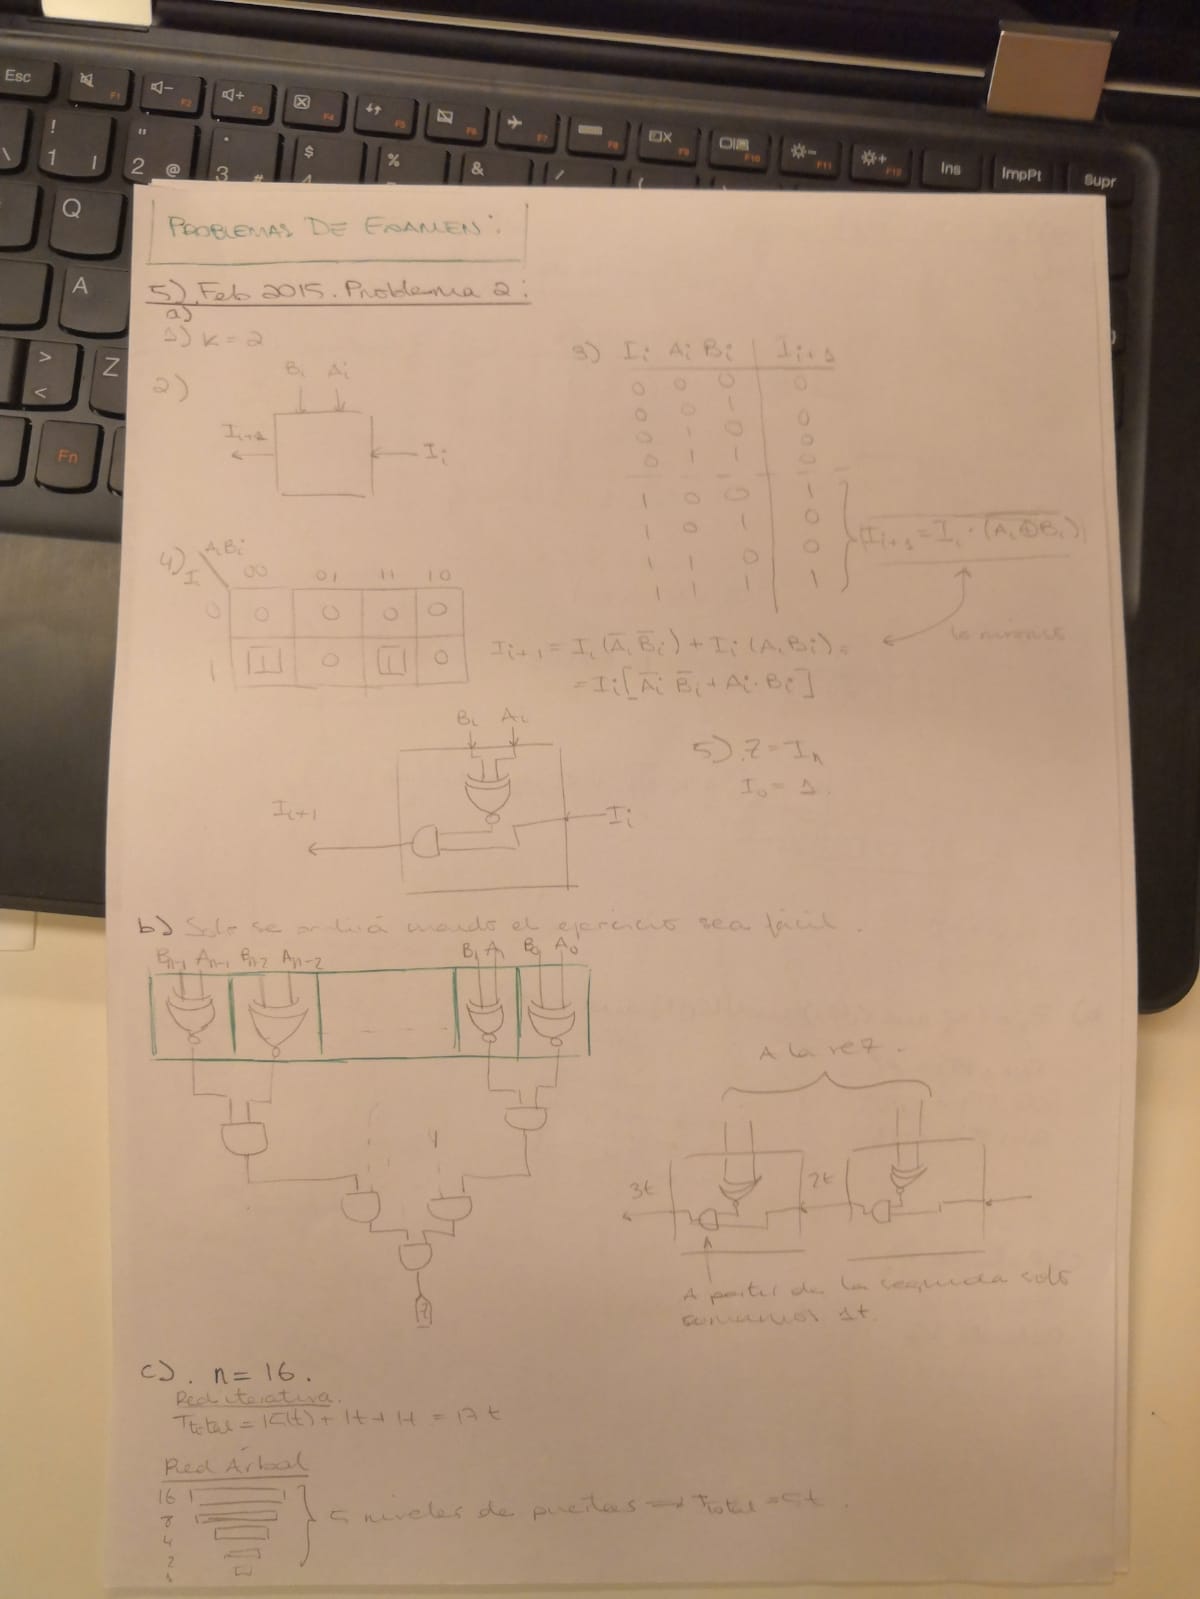 Esc F1 F2 F3 F4 F5 F6 F7 F8 F9 F10 F11 F12 Ins ImpPt Supr
! 1 | " 2 @ · 3 # $ 4 % & / (
Q
A
> < Z
Fn
PROBLEMAS DE EXAMEN:
5) Feb 2015. Problema 2:
a)
1) K = 2
2)
Bi Ai
Ii+1
Ii
3) Ii Ai Bi | Ii+1
0 0 0 0
0 0 1 0
0 1 0 0
0 1 1 0
1 0 0 1
1 0 1 0
1 1 0 0
1 1 1 1
Ii+1 = Ii · (Ai ⊕ Bi)
4) I \ AiBi 00 01 11 10
0 0 0 0 0
1 1 0 1 0
Ii+1 = Ii (Āi B̄i) + Ii (Ai Bi) =
lo mismo
= Ii [Āi B̄i + Ai · Bi]
Bi Ai
Ii+1
Ii
5) Z = In
I0 = 1
b) Solo se cuando el ejercicio sea fácil.
Bn-1 An-1 Bn-2 An-2 B1 A1 B0 A0
Z
A la vez.
3t
2t
A partir de la segunda solo
sumamos 1t.
c). n = 16.
Red iterativa.
Ttotal = 15(t) + 1t + 1t = 17t
Red Árbol
16
8
4
2
1
5 niveles de puertas → Ttotal = 5t.